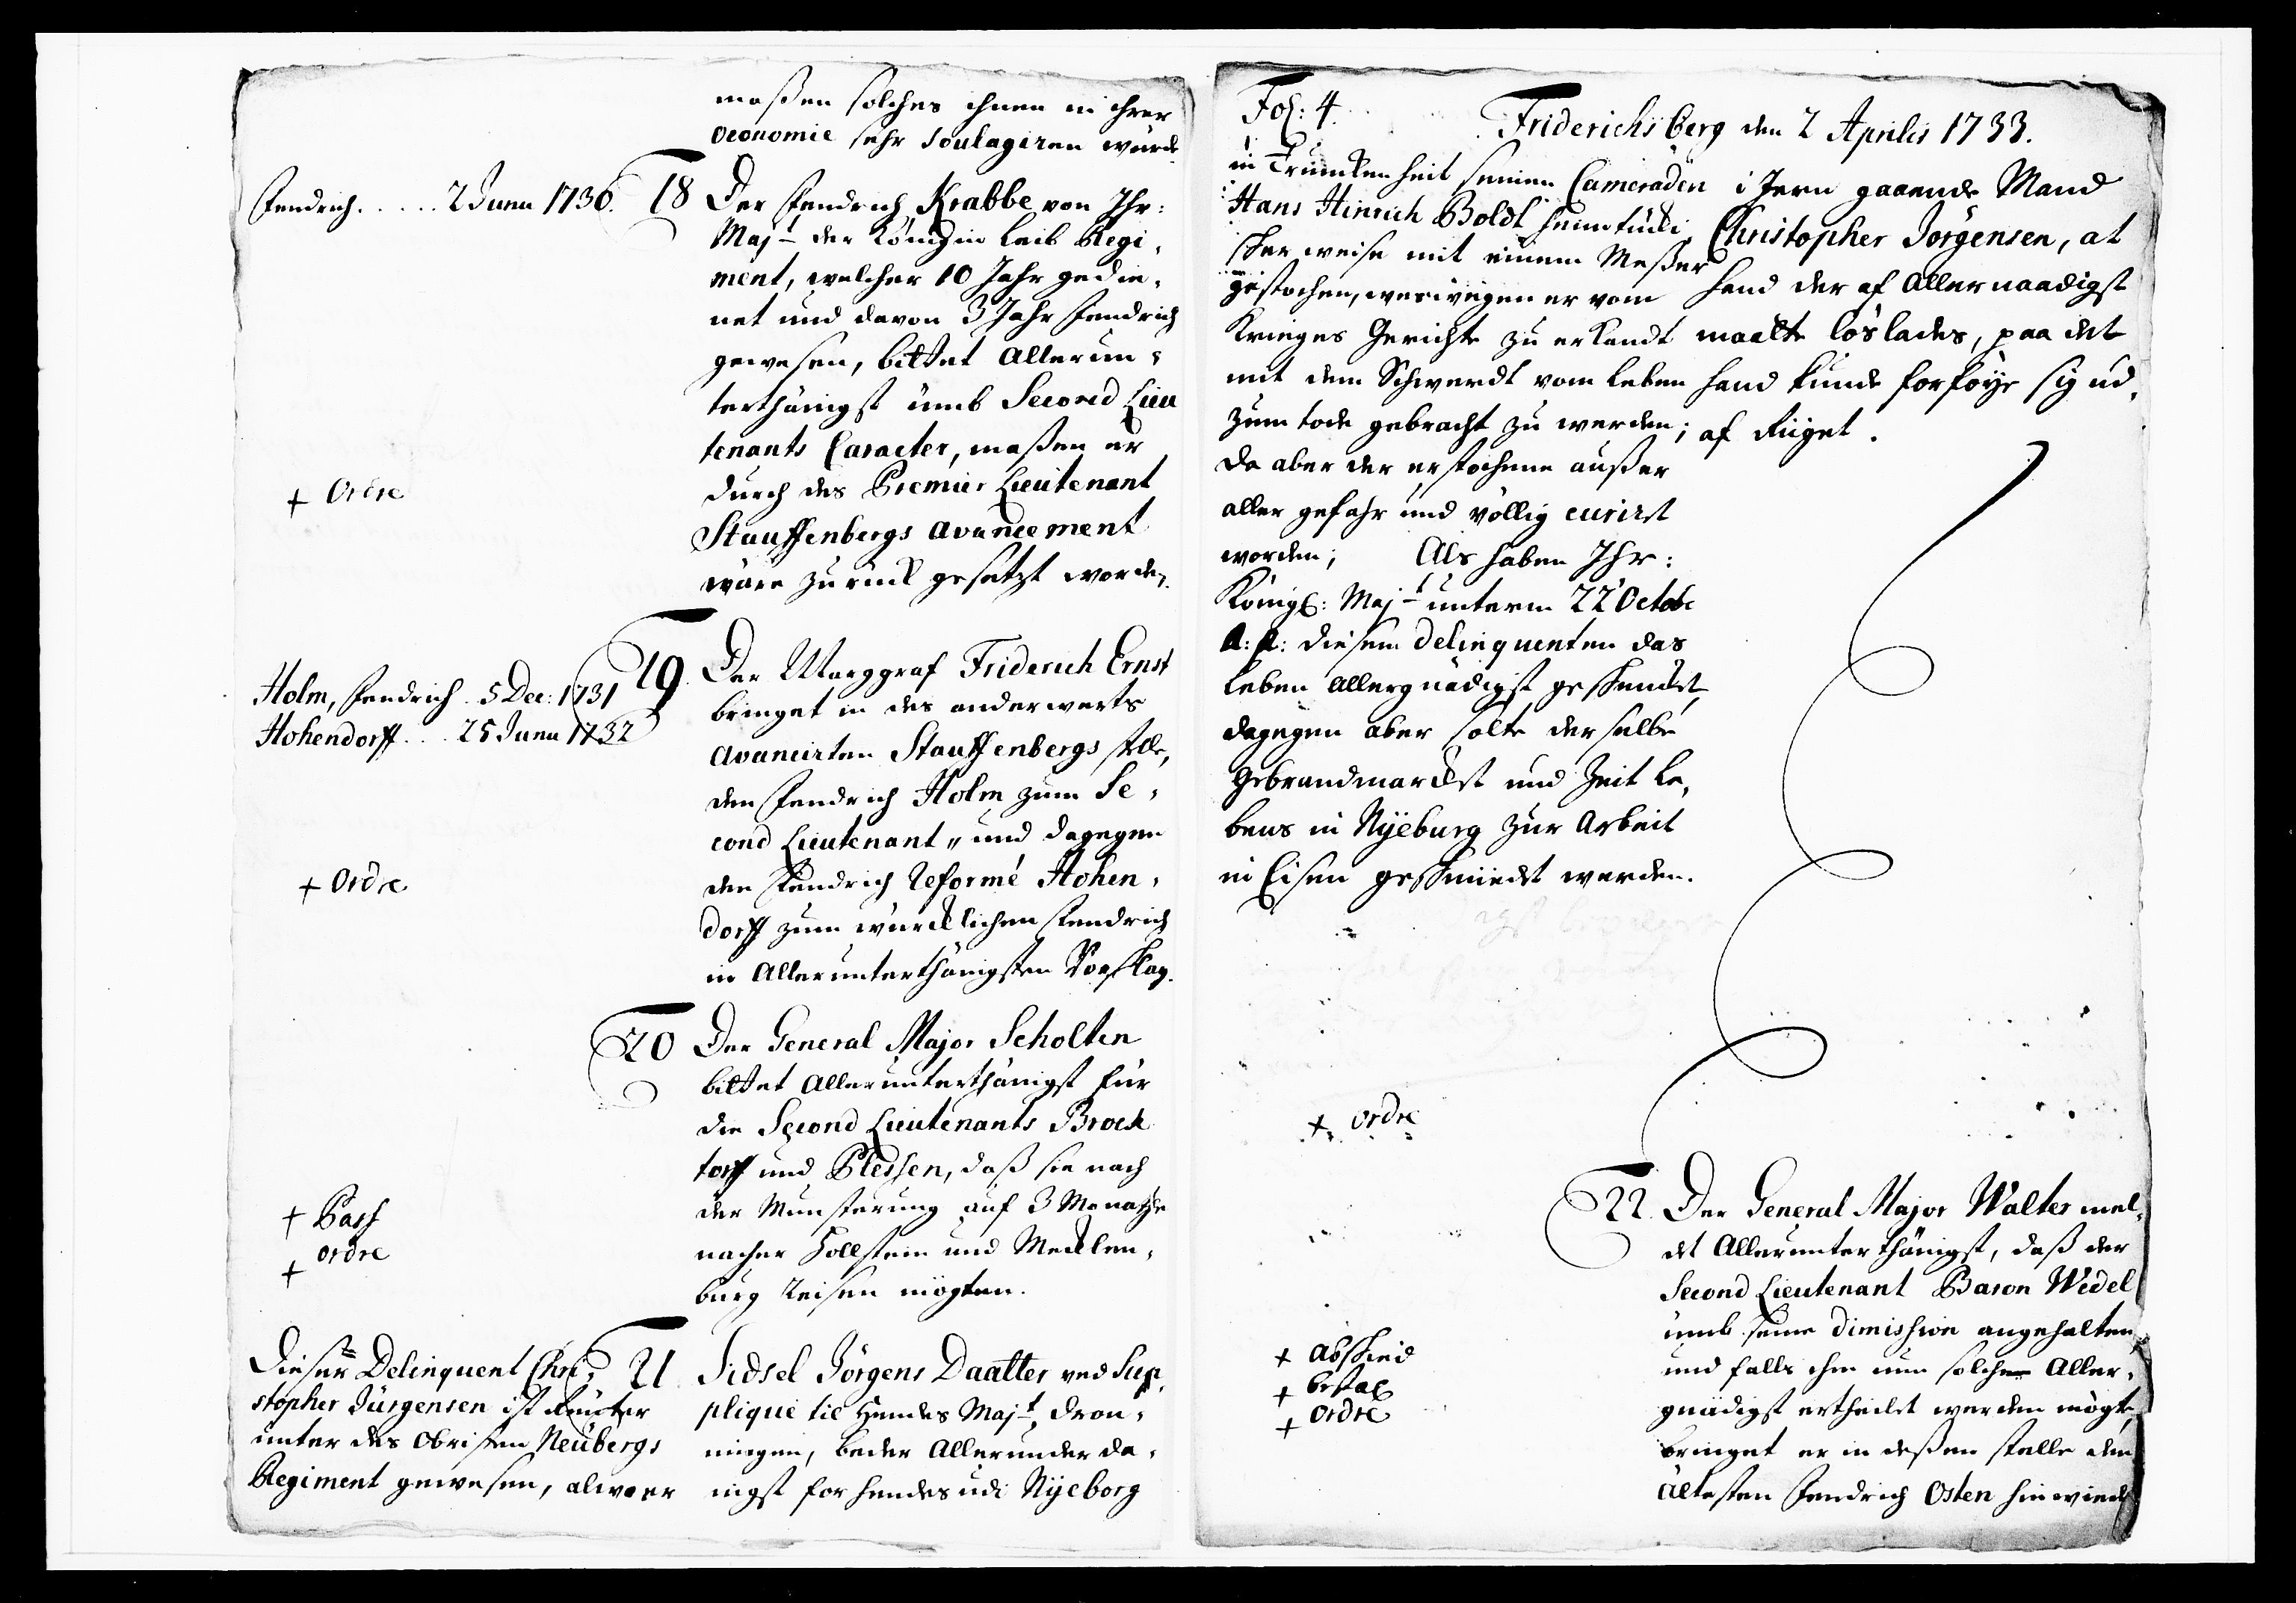 maßen solches ihnen in ihrer
Oeconomie sehr soulagiren würde
Fendrich. . . . . 2 Junii 1730.
18 Der Fendrich Krabbe von Ihr:
Majt der Königin Leib Regi,
ment, welcher 10 Jahr gedie,
net und davon 3 Jahr Fendrich
gewesen, bittet Allerun,
terthänigst ümb Second Lieu
tenants Caracter, maßen er
+ Ordre
durch des Premier Lieutenant
Stauffenbergs avancement
wäre zurück gesetzt worden.
19. Der Marggraf Friderich Ernst
Holm, Fendrich . 5 Dec: 1731
bringet in des anderwerts
Hohendorff . . . 25 Junii 1732
avancirten Stauffenbergs stelle,
den Fendrich Holm zum Se,
cond Lieutenant, und dagegen
+ Ordre
den Fendrich Reformé Hohen,
dorff zum würcklichen Fendrich
in Allerunterthänigsten Vorschlag.
20 Der General Major Scholten
bittet Allerunterthänigst für
die Second Lieutenants Brock
torff und Plessen, daß sie nach
der Munsterung auf 3 Monathe
+ Pass
nacher Hollstein und Mecklen,
+ ordre
burg reisen mögten.
21 Sidsel Jörgens Daatter ved Sup,
plique til Hendes Majt Dron,
ningen, beder Allerunderda,
nigst for hendes udi Nyeborg
Dieser Delinquent Chri,
stopher Jürgensen ist Reuter
unter des Obristen Neubergs
Regiment gewesen, alwo er
Fol: 4.
Friderichsberg den 2 Aprilis 1733.
in Trunckenheit seinen Cameraden
Hans Hinrich Boldt heimtücki,
scher weise mit einem Meßer
gestochen, weswegen er vom
Krieges Gerichte zu erkandt
mit dem Schwerdt vom Leben
zum tode gebracht zu werden;
da aber der erstochene außer
aller gefahr und völlig curiret
worden; Als haben Ihr:
Königl: Majt unterm 22 Octobr
a: p: diesem Delinquenten das
Leben Allergnädigst geschencket,
dagegen aber solte derselbe
gebrandmarcket und Zeit Le,
bens in Nyeburg zur Arbeit
in Eisen geschmiedet werden.
i Jern gaaende Mand
Christopher Jörgensen, at
hand der af Allernaadigst
maatte löslades, paa det
hand kunde forföye sig ud,
af Riiget.
+ ordre
22. Der General Major Walter mel,
det Allerunterthänigst, daß der
Second Lieutenant Baron Wedel
ümb seine Dimission angehalten,
+ Abscheid
und falls ihm nun solche Aller,
+ bestal
gnädigst ertheilet werden mögte,
+ ordre
bringet er in deßen stelle den
ältesten Fendrich Osten hinwied